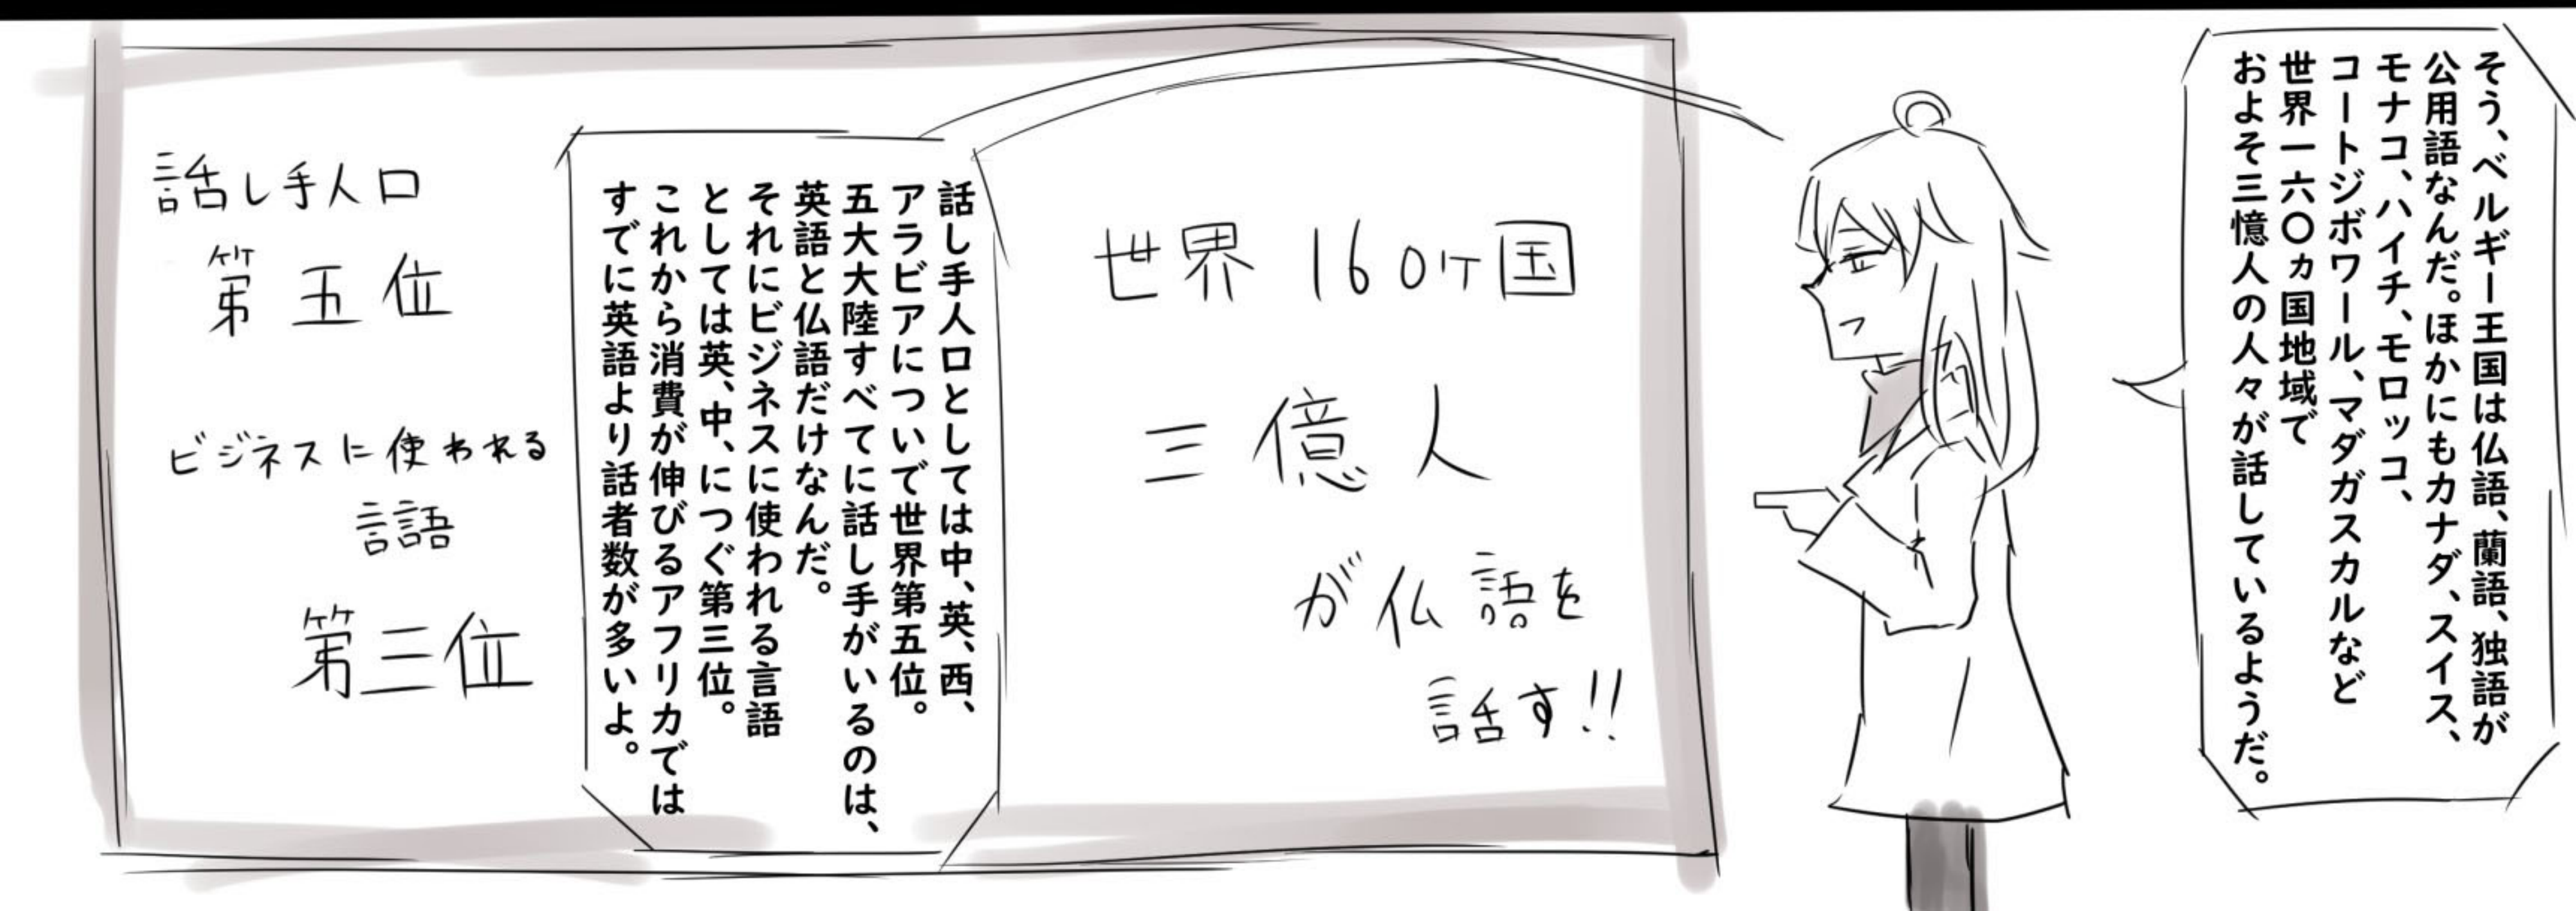 そう、ベルギー王国は仏語、蘭語、独語が
公用語なんだ。ほかにもカナダ、スイス、
モナコ、ハイチ、モロッコ、
コートジボワール、マダガスカルなど
世界一六〇ヵ国地域で
およそ三憶人の人々が話しているようだ。
世界160ケ国
三億人
が仏語を
話す!!
話し手人口としては中、英、西、
アラビアについで世界第五位。
五大大陸すべてに話し手がいるのは、
英語と仏語だけなんだ。
それにビジネスに使われる言語
としては英、中、につぐ第三位。
これから消費が伸びるアフリカでは
すでに英語より話者数が多いよ。
話し手人口
第五位
ビジネスに使われる
言語
第三位